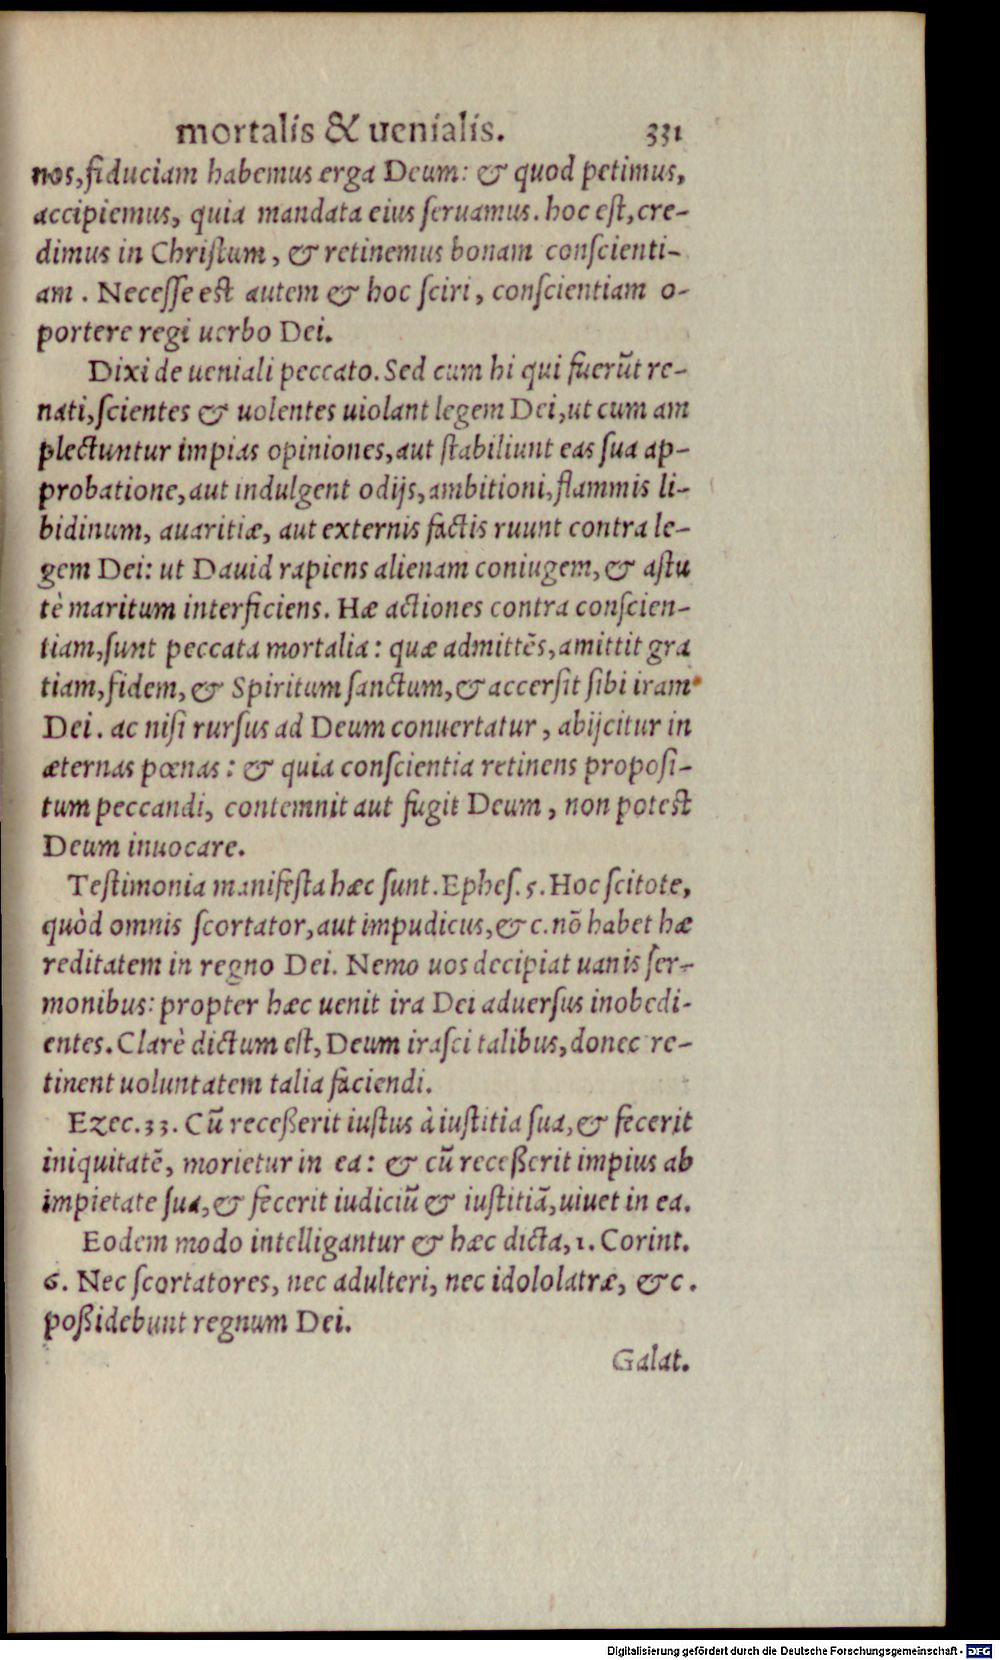 mortalis & uenialis. 331
nos, fiduciam habemus erga Deum: & quod petimus,
accipiemus, quia mandata eius ſeruamus. hoc eſt, cre-
dimus in Chriſtum, & retinemus bonam conſcienti-
am. Neceſſe est autem & hoc ſciri, conſcientiam o-
portere regi uerbo Dei.
Dixi de ueniali peccato. Sed cum hi qui fuerūt re-
nati, ſcientes & uolentes uiolant legem Dei, ut cum am
plectuntur impias opiniones, aut ſtabiliunt eas ſua ap-
probatione, aut indulgent odijs, ambitioni, flammis li-
bidinum, auaritiæ, aut externis factis ruunt contra le-
gem Dei: ut Dauid rapiens alienam coniugem, & aſtu
tè maritum interficiens. Hæ actiones contra conſcien-
tiam, ſunt peccata mortalia: quæ admittēs, amittit gra
tiam, fidem, & Spiritum ſanctum, & accerſit ſibi iram
Dei. ac niſi rurſus ad Deum conuertatur, abijcitur in
æternas pœnas: & quia conſcientia retinens propoſi-
tum peccandi, contemnit aut fugit Deum, non potest
Deum inuocare.
Teſtimonia manifeſta hæc ſunt. Epheſ. 5. Hoc ſcitote,
quòd omnis ſcortator, aut impudicus, &c. nō habet hæ
reditatem in regno Dei. Nemo uos decipiat uanis ſer-
monibus: propter hæc uenit ira Dei aduerſus inobedi-
entes. Clarè dictum eſt, Deum iraſci talibus, donec re-
tinent uoluntatem talia faciendi.
Ezec. 33. Cū receßerit iuſtus à iuſtitia ſua, & fecerit
iniquitatē, morietur in ea: & cū receßerit impius ab
impietate ſua, & fecerit iudiciū & iuſtitiā, uiuet in ea.
Eodem modo intelligantur & hæc dicta, 1. Corint.
6. Nec ſcortatores, nec adulteri, nec idololatræ, &c.
poßidebunt regnum Dei.
Galat.
Digitalisierung gefördert durch die Deutsche Forschungsgemeinschaft - DFG